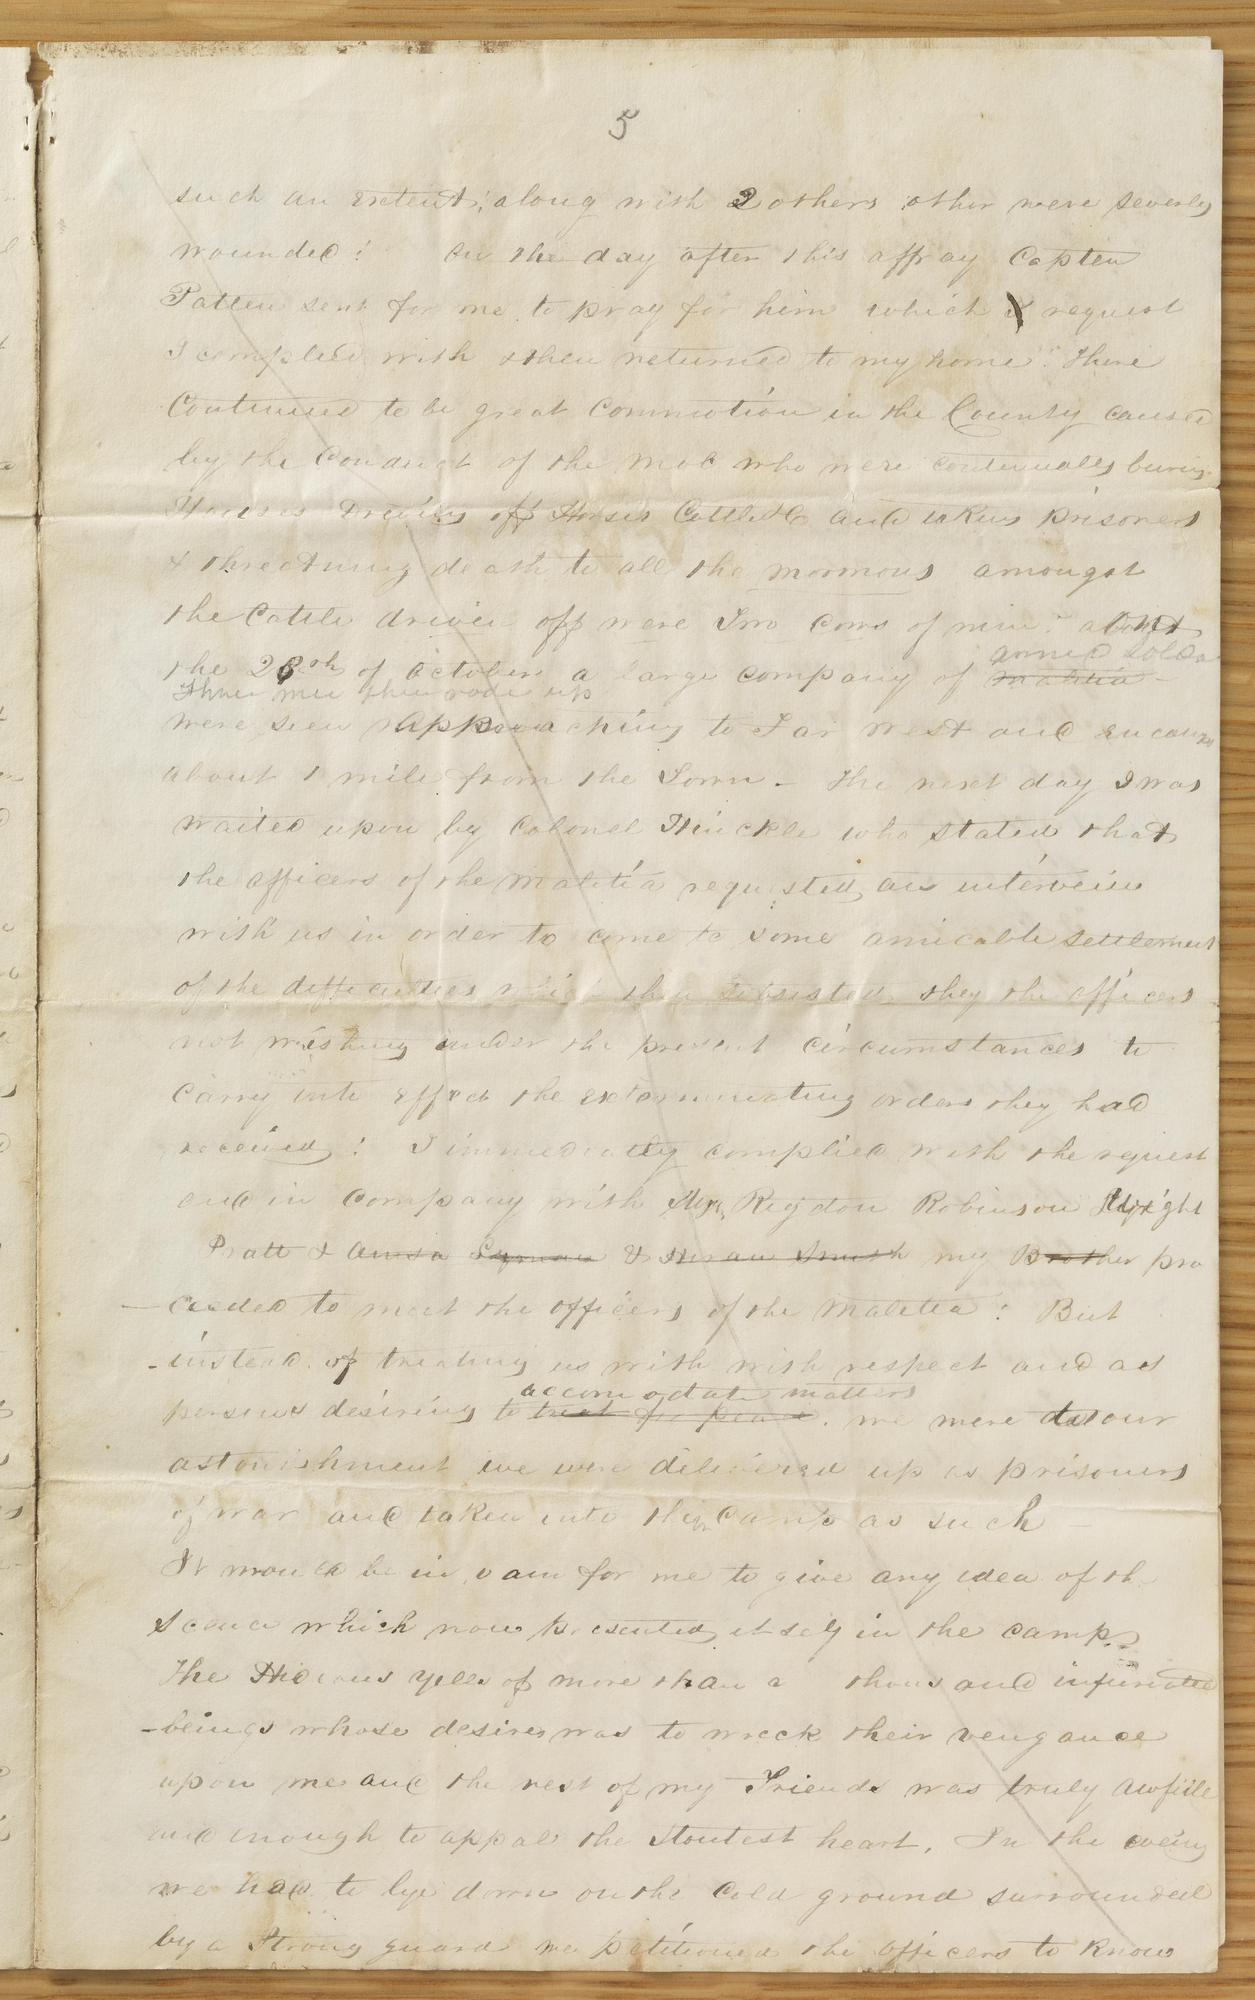 5
such an extent; along with 2 others other were severly
wounded! On the day after this affray Capten
Patten sent for me to pray for him which request
I complied with & then returned to my home. There
Continued to be great commotion in the County caused
by the Conduct of the mob who were continually burning
Houses Driving off Horses Cattle &c and taking prisoners
& threatning death to all the mormons amongst
the Cattle driven off were Two cows of mine. about
armed soldiers
the 28th of October a large company of malitia
Three men then rode up
were seen Approaching to Far West and encamped
about 1 mile from the Town – The next day I was
waited upon by Colonel Hinckle who stated that
the officers of the malitia requested an interveiw
with us in order to come to some amicable settlement
of the difficulties which then subsisted, they the officers
not wishing under the present circumstances to
carry into effect the exterminating orders they had
received! I immediatly complied with the request
and in company with Rigdon Robinson Wight
Pratt & Amsa Lyman & Hiram Smith my Brother pro
–ceeded to meet the officers of the malitia: But
–instead of treating us with with respect and as
accomodate matters
persons desiring to treat for peace. we were to our
astonishment we were delivered up as prisoners
of war and taken into their Camp as such –
It would be in vain for me to give any idea of the
scene which now presented itself in the camp.
The Hideous yells of more than a thousand infuriated
–beings whose desires was to wreck their vengance
upon me and the rest of my Friends was truly awfulle
and enough to appal the stoutest heart. In the eveing
we had to lye down on the Cold ground surrounded
by a Strong guard we petitioned the officers to know